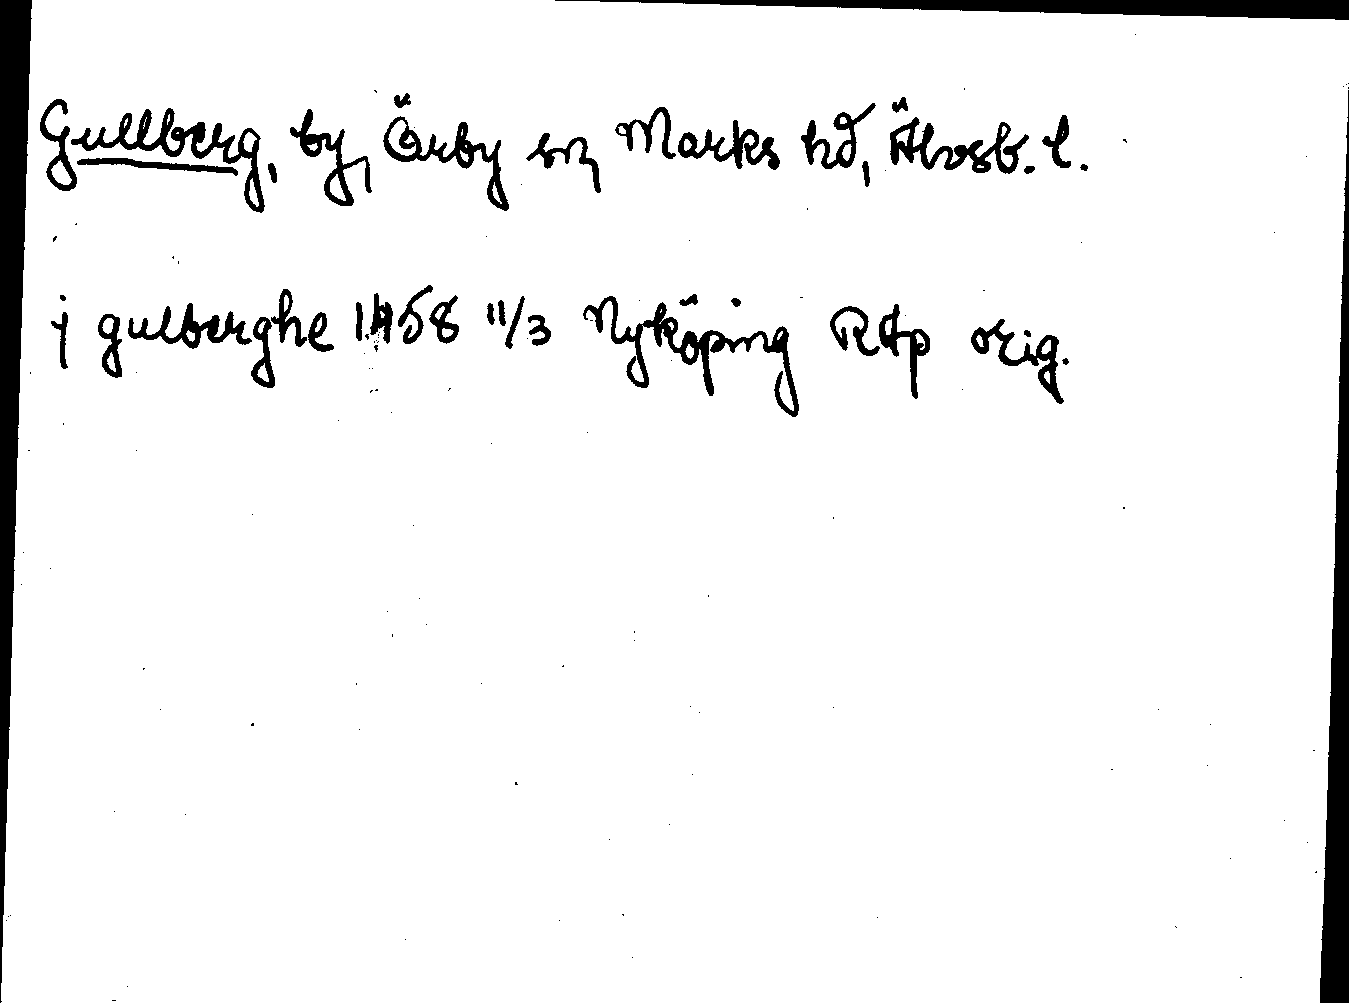 Gullberg, by, Örby sn, Marks hd, Älvsb. l.
j gulberghe 1458 11/3 Nyköping RAp orig.